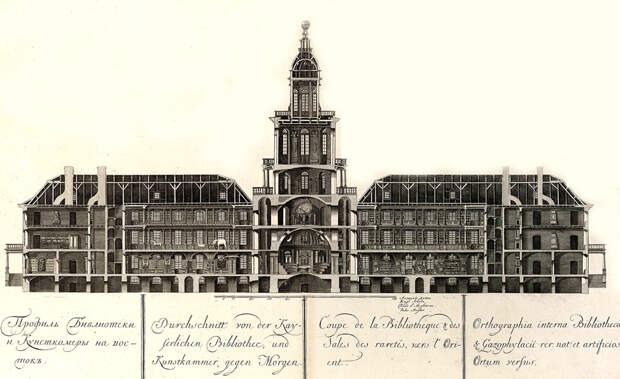 Профиль Библиотеки
и Кунсткамеры на вос-
токъ.
Durchschnitt von der Kay-
serlichen Bibliothec, und
Kunstkammer, gegen Morgen.
Coupe de la Bibliotheque & des
Sales des raretés, vers l'Ori-
ent.
Orthographia interna Bibliothecæ
& Gazophylacii rer nat et artificios
Ortum versus.